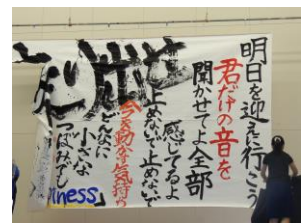 明日を迎え行こう
君だけの音を
聞かせてよ全部
感じてるよ
止めないで止めないで
今を動かす気持ち
どんなに
小さな
つぼみでも
iness